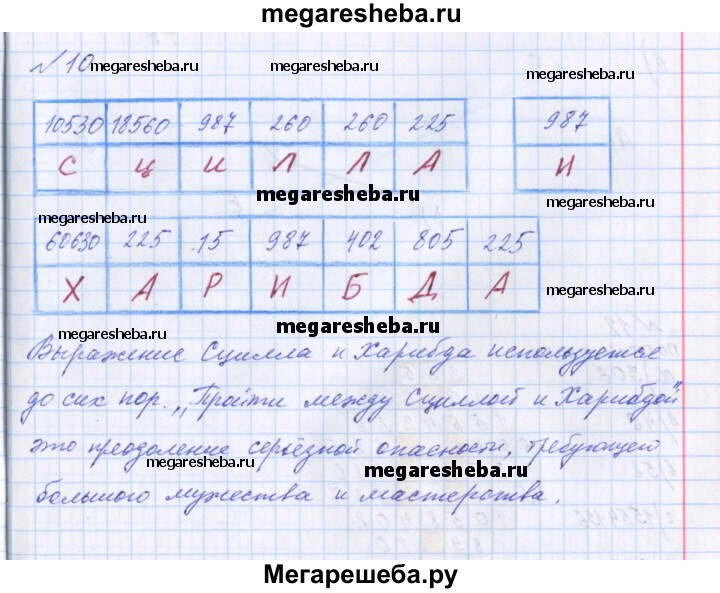 megaresheba.ru
№ 10
megaresheba.ru
megaresheba.ru
10530 18560 987 260 260 225 987
С Ц И Л Л А И
megaresheba.ru
megaresheba.ru
megaresheba.ru
60630 225 15 987 402 805 225
Х А Р И Б Д А
megaresheba.ru
megaresheba.ru
Выражение Сцилла и Харибда используется
до сих пор. „Пройти между Сциллой и Харибдой"
это преодоление серьёзной опасности, требующей
megaresheba.ru
megaresheba.ru
большого мужества и мастерства.
Мегарешеба.ру